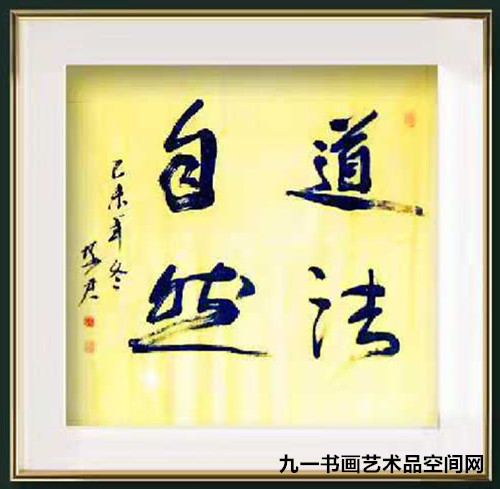 道法
自然
己未年冬
君
九一书画艺术品空间网